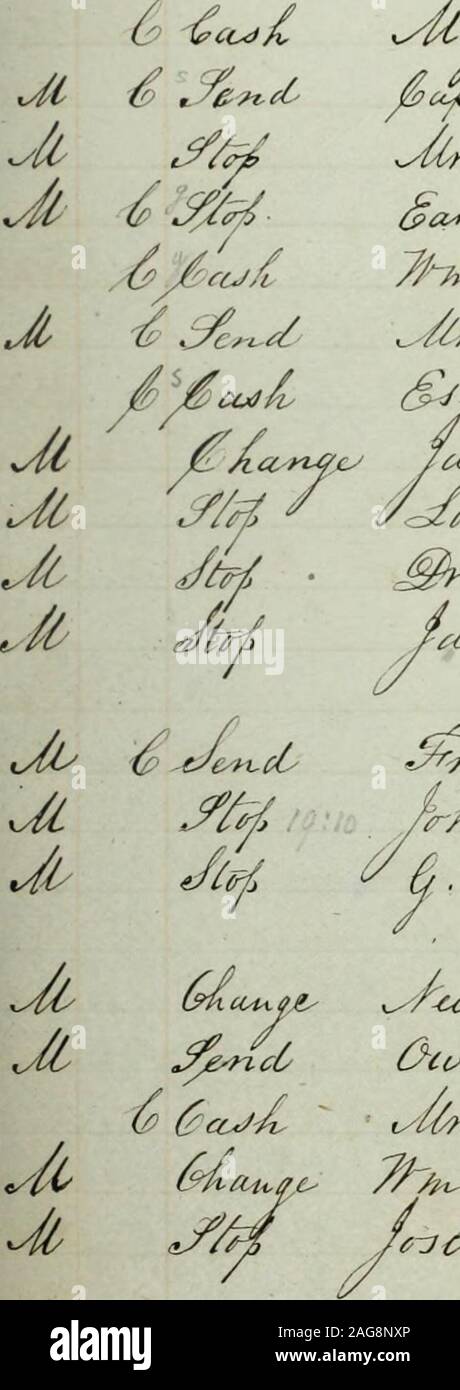 C Cash M
M C s Send Cap
M Stop Mr
M C g Stop. Ear
C g Cash Wm
M C Send Mr
C s Cash Es
M Change Ja
M Stop Lo
M Stop Dr
M Stop Ja
M C Send Fr
M Stop 19:10 Jon
M Stop G.
M Change New
M Send Ow
C Cash Mr
M Change Wm
M Stop Jose
alamy
Image ID: 2AG8NXP
www.alamy.com